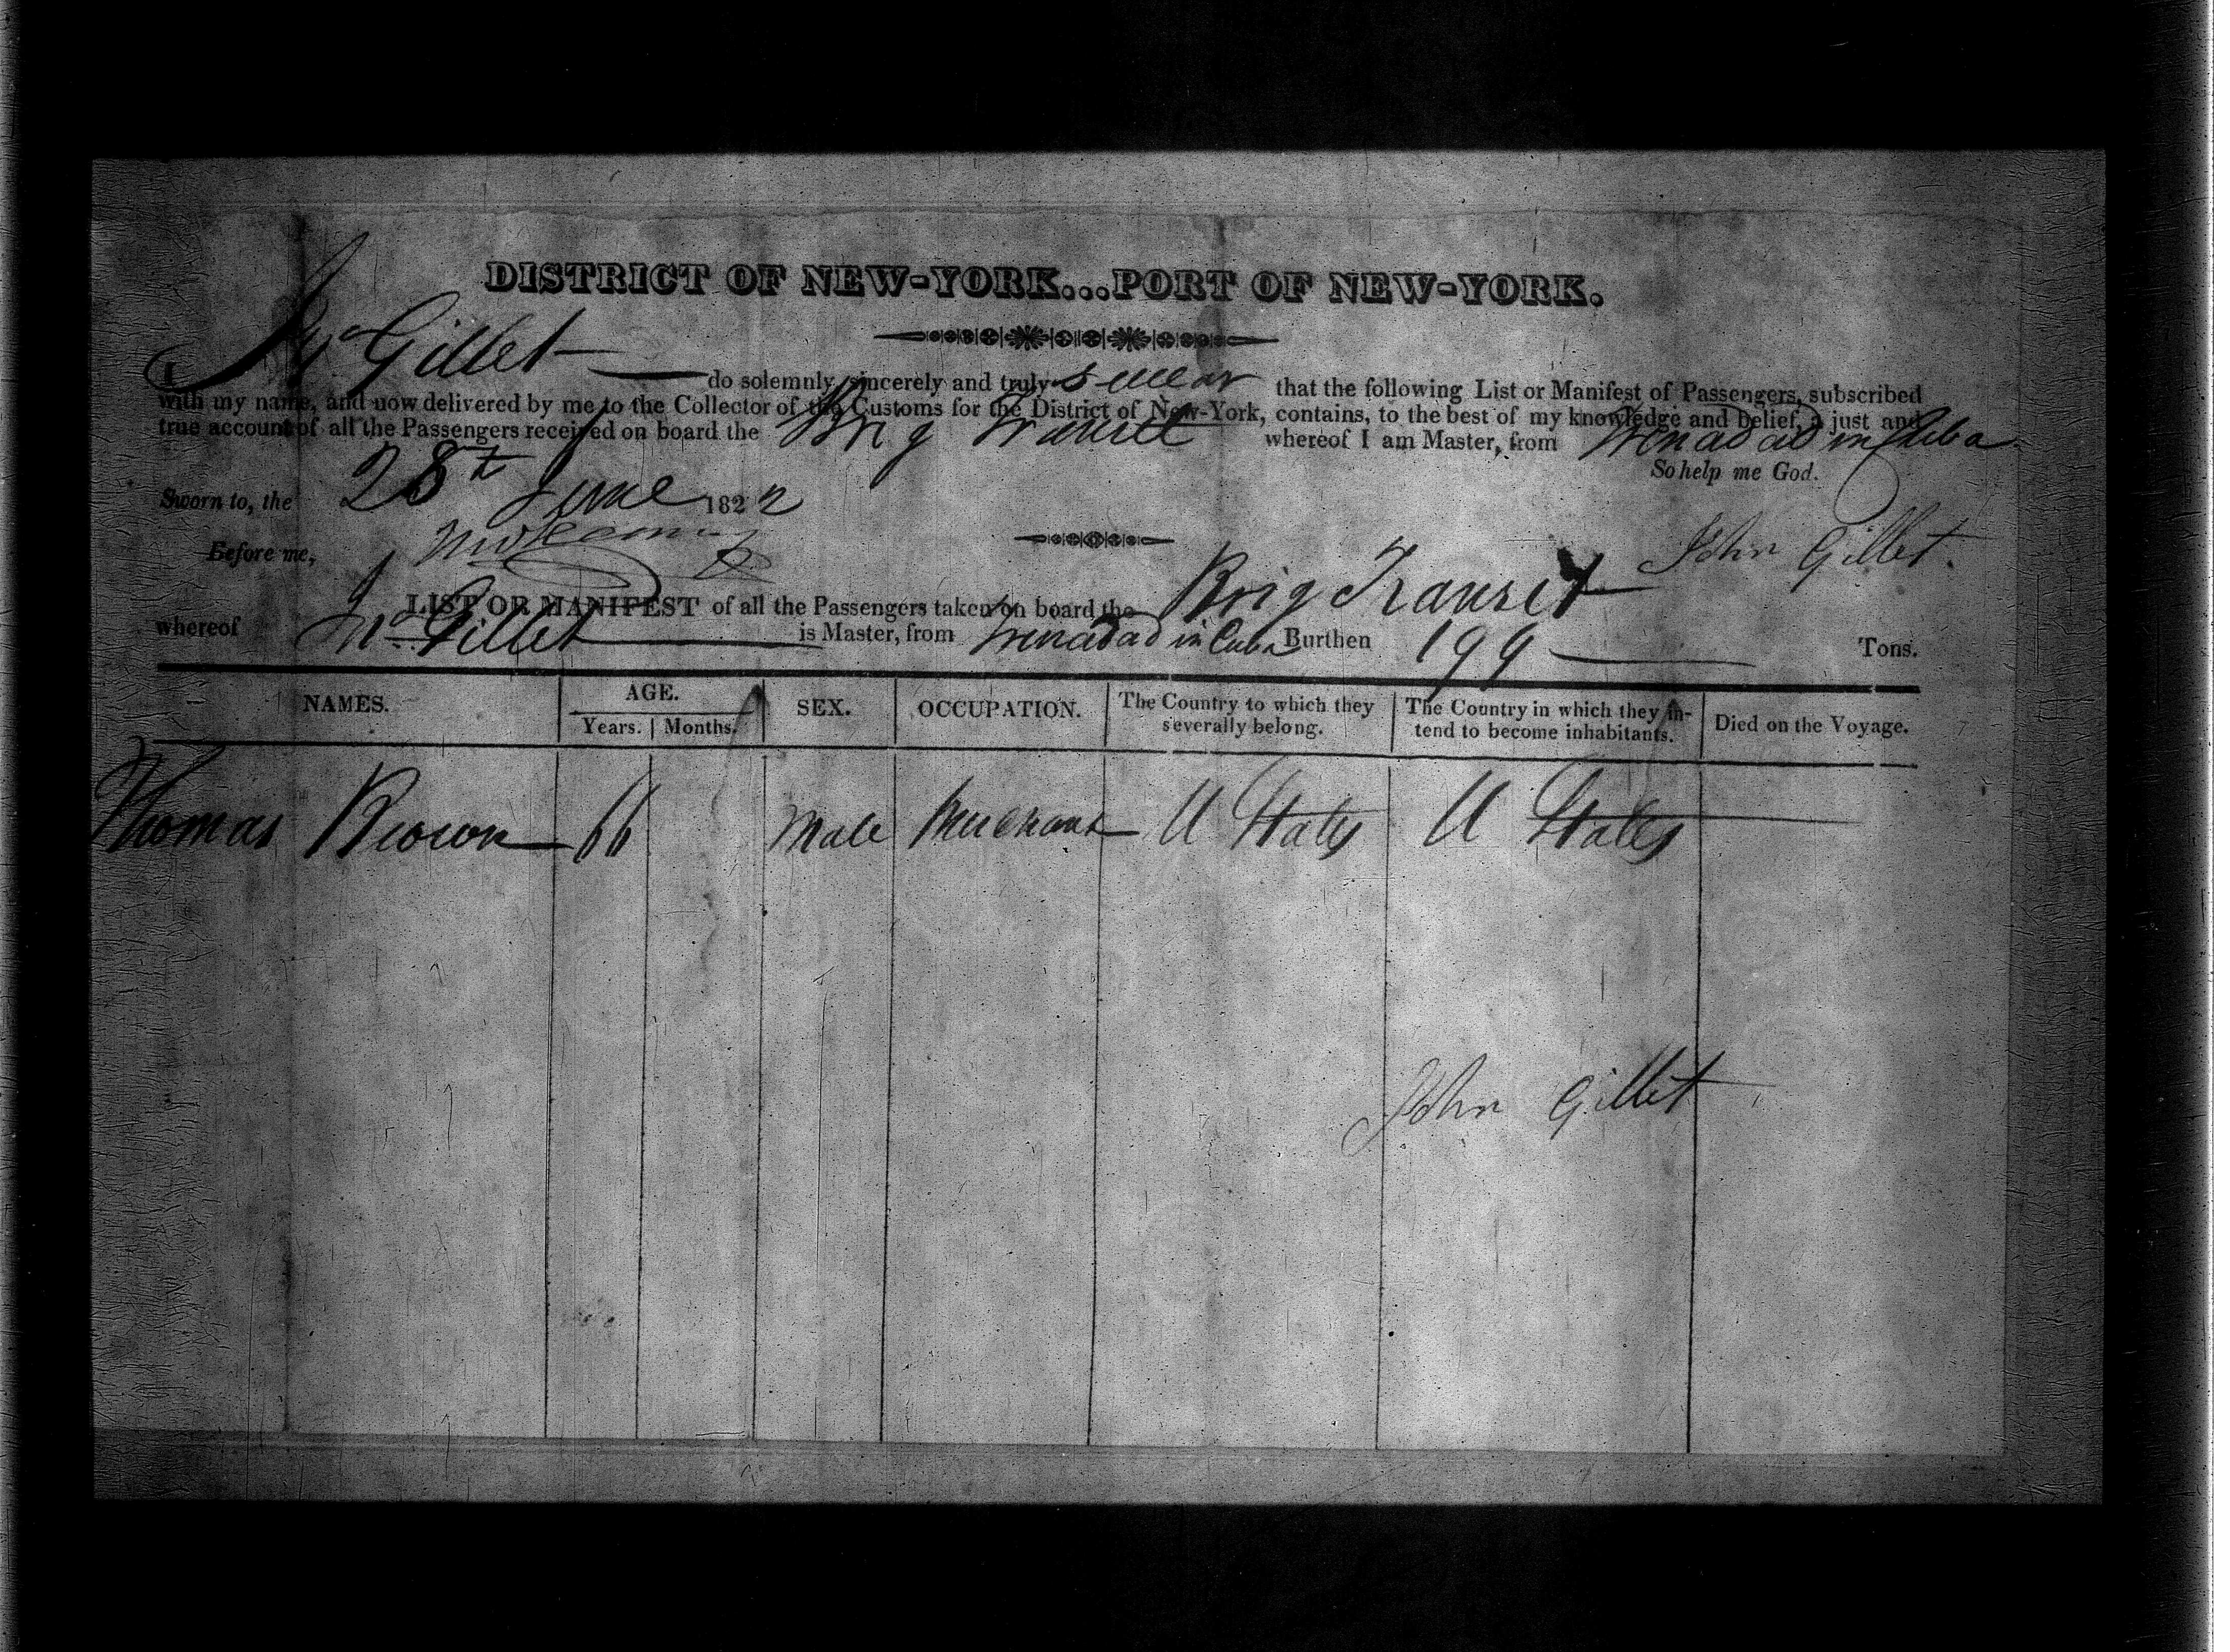 DISTRICT OF NEW-YORK...PORT OF NEW-YORK.
I Jno Gillet do solemnly, sincerely and truly swear that the following List or Manifest of Passengers, subscribed
with my name, and now delivered by me to the Collector of the Customs for the District of New-York, contains, to the best of my knowledge and belief, a just and
true account of all the Passengers received on board the Brig Transit whereof I am Master, from Trenadad in Cuba
So help me God.
Sworn to, the 28t June 1822
Before me,
John Gillet.
LIST OR MANIFEST of all the Passengers taken on board the Brig Transit
whereof Jno Gillet is Master, from Trenadad in Cuba Burthen 199 Tons.
NAMES. AGE. Years. Months. SEX. OCCUPATION. The Country to which they severally belong. The Country in which they in-tend to become inhabitants. Died on the Voyage.
Thomas Brown 66 Male Merchant U States U States
John Gillet